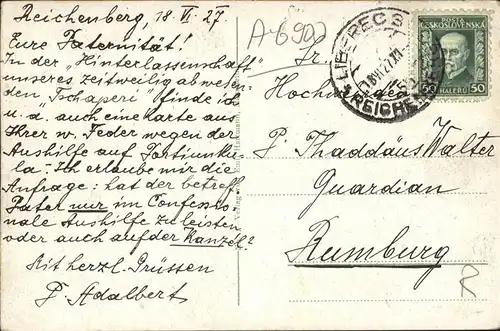 Reichenberg, 18. VI. 27
Eure Paternität!
In der "Hinterlassenschaft"
unseres zeitweilig abwesen-
den "Tschaperl" finde ich
u. a. auch eine Karte aus
Ihrer w. Feder wegen der
Aushilfe auf Portiunku-
la. Ich erlaube mir die
Anfrage: hat der betreff.
Pater nur im Confessio-
nale Aushilfe zu leisten
oder auch auf der Kanzel?
Mit herzl. Grüssen
P. Adalbert
A-6900
Sr.
Hochw.
P. Thaddäus Walter
Guardian
Rumburg
R
LIBEREC
REICHE
POŠTA
ČESKOSLOVENSKÁ
50 HALÉŘŮ 50